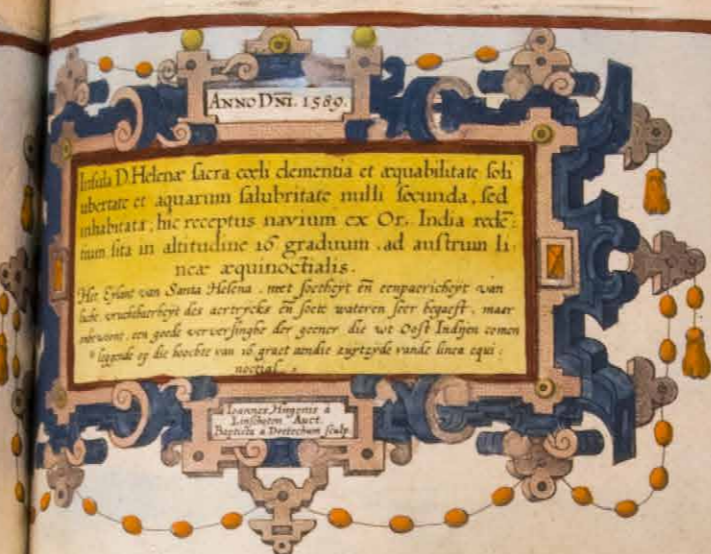 ANNO DN̄I. 1589.
Insula D. Helenæ sacra cœli clementia et æquabilitate soli
ubertate et aquarum salubritate nulli secunda, sed
inhabitata, hic receptus navium ex Or. India rede-
tium sita in altitudine 16 graduum, ad austrum li-
neæ æquinoctialis.
Het Eylant van Santa Helena, met soetheyt en̄ eenpaericheyt van
lucht, vruchtbaerheyt des aertrycks en̄ soete wateren seer begaeft, maar
onbewoont, een goede verversinghe der geener die wt Oost Indijen comen
leggende op die hoochte van 16 graet aendie zuytzyde vande linea equi-
noctial.
Ioannes Hugonis a
Linschoten Auct.
Baptista a Doetechum sculp.